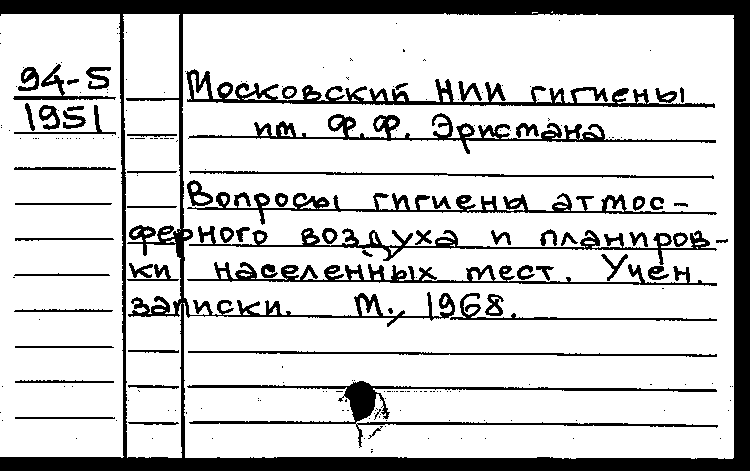 94-5
1951
Московский НИИ гигиены
им. Ф.Ф. Эристана
Вопросы гигиены атмос-
ферного воздуха и планиров-
ки населенных мест. Учен.
записки. М., 1968.